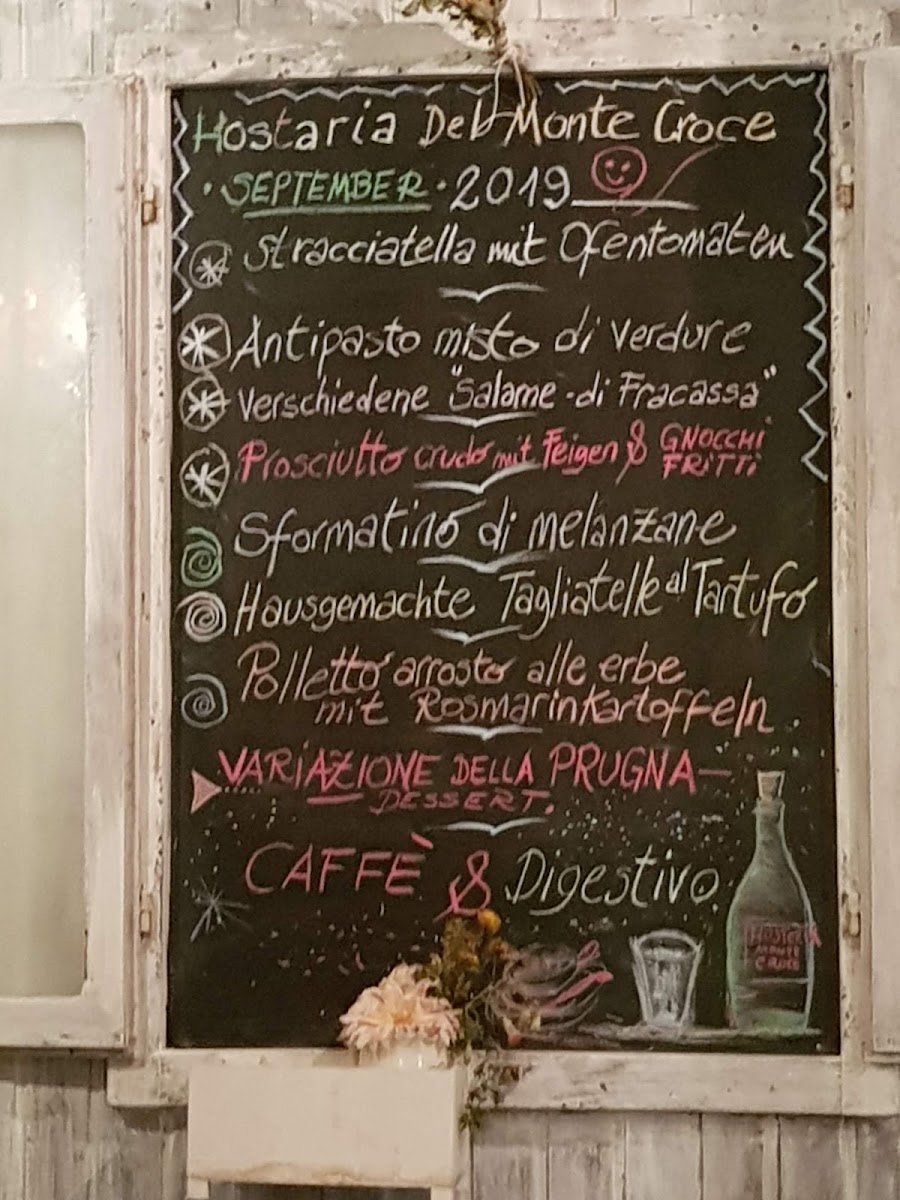 Hostaria Del Monte Croce
· SEPTEMBER · 2019
Stracciatella mit Ofentomaten
Antipasto misto di verdure
Verschiedene "Salame-di Fracassa"
Prosciutto crudo mit Feigen & GNOCCHI
FRITTI
Sformatino di melanzane
Hausgemachte Tagliatelle al Tartufo
Polletto arrosto alle erbe
mit Rosmarinkartoffeln
VARIAZIONE DELLA PRUGNA
DESSERT.
CAFFÈ & Digestivo
MONTE
CROCE